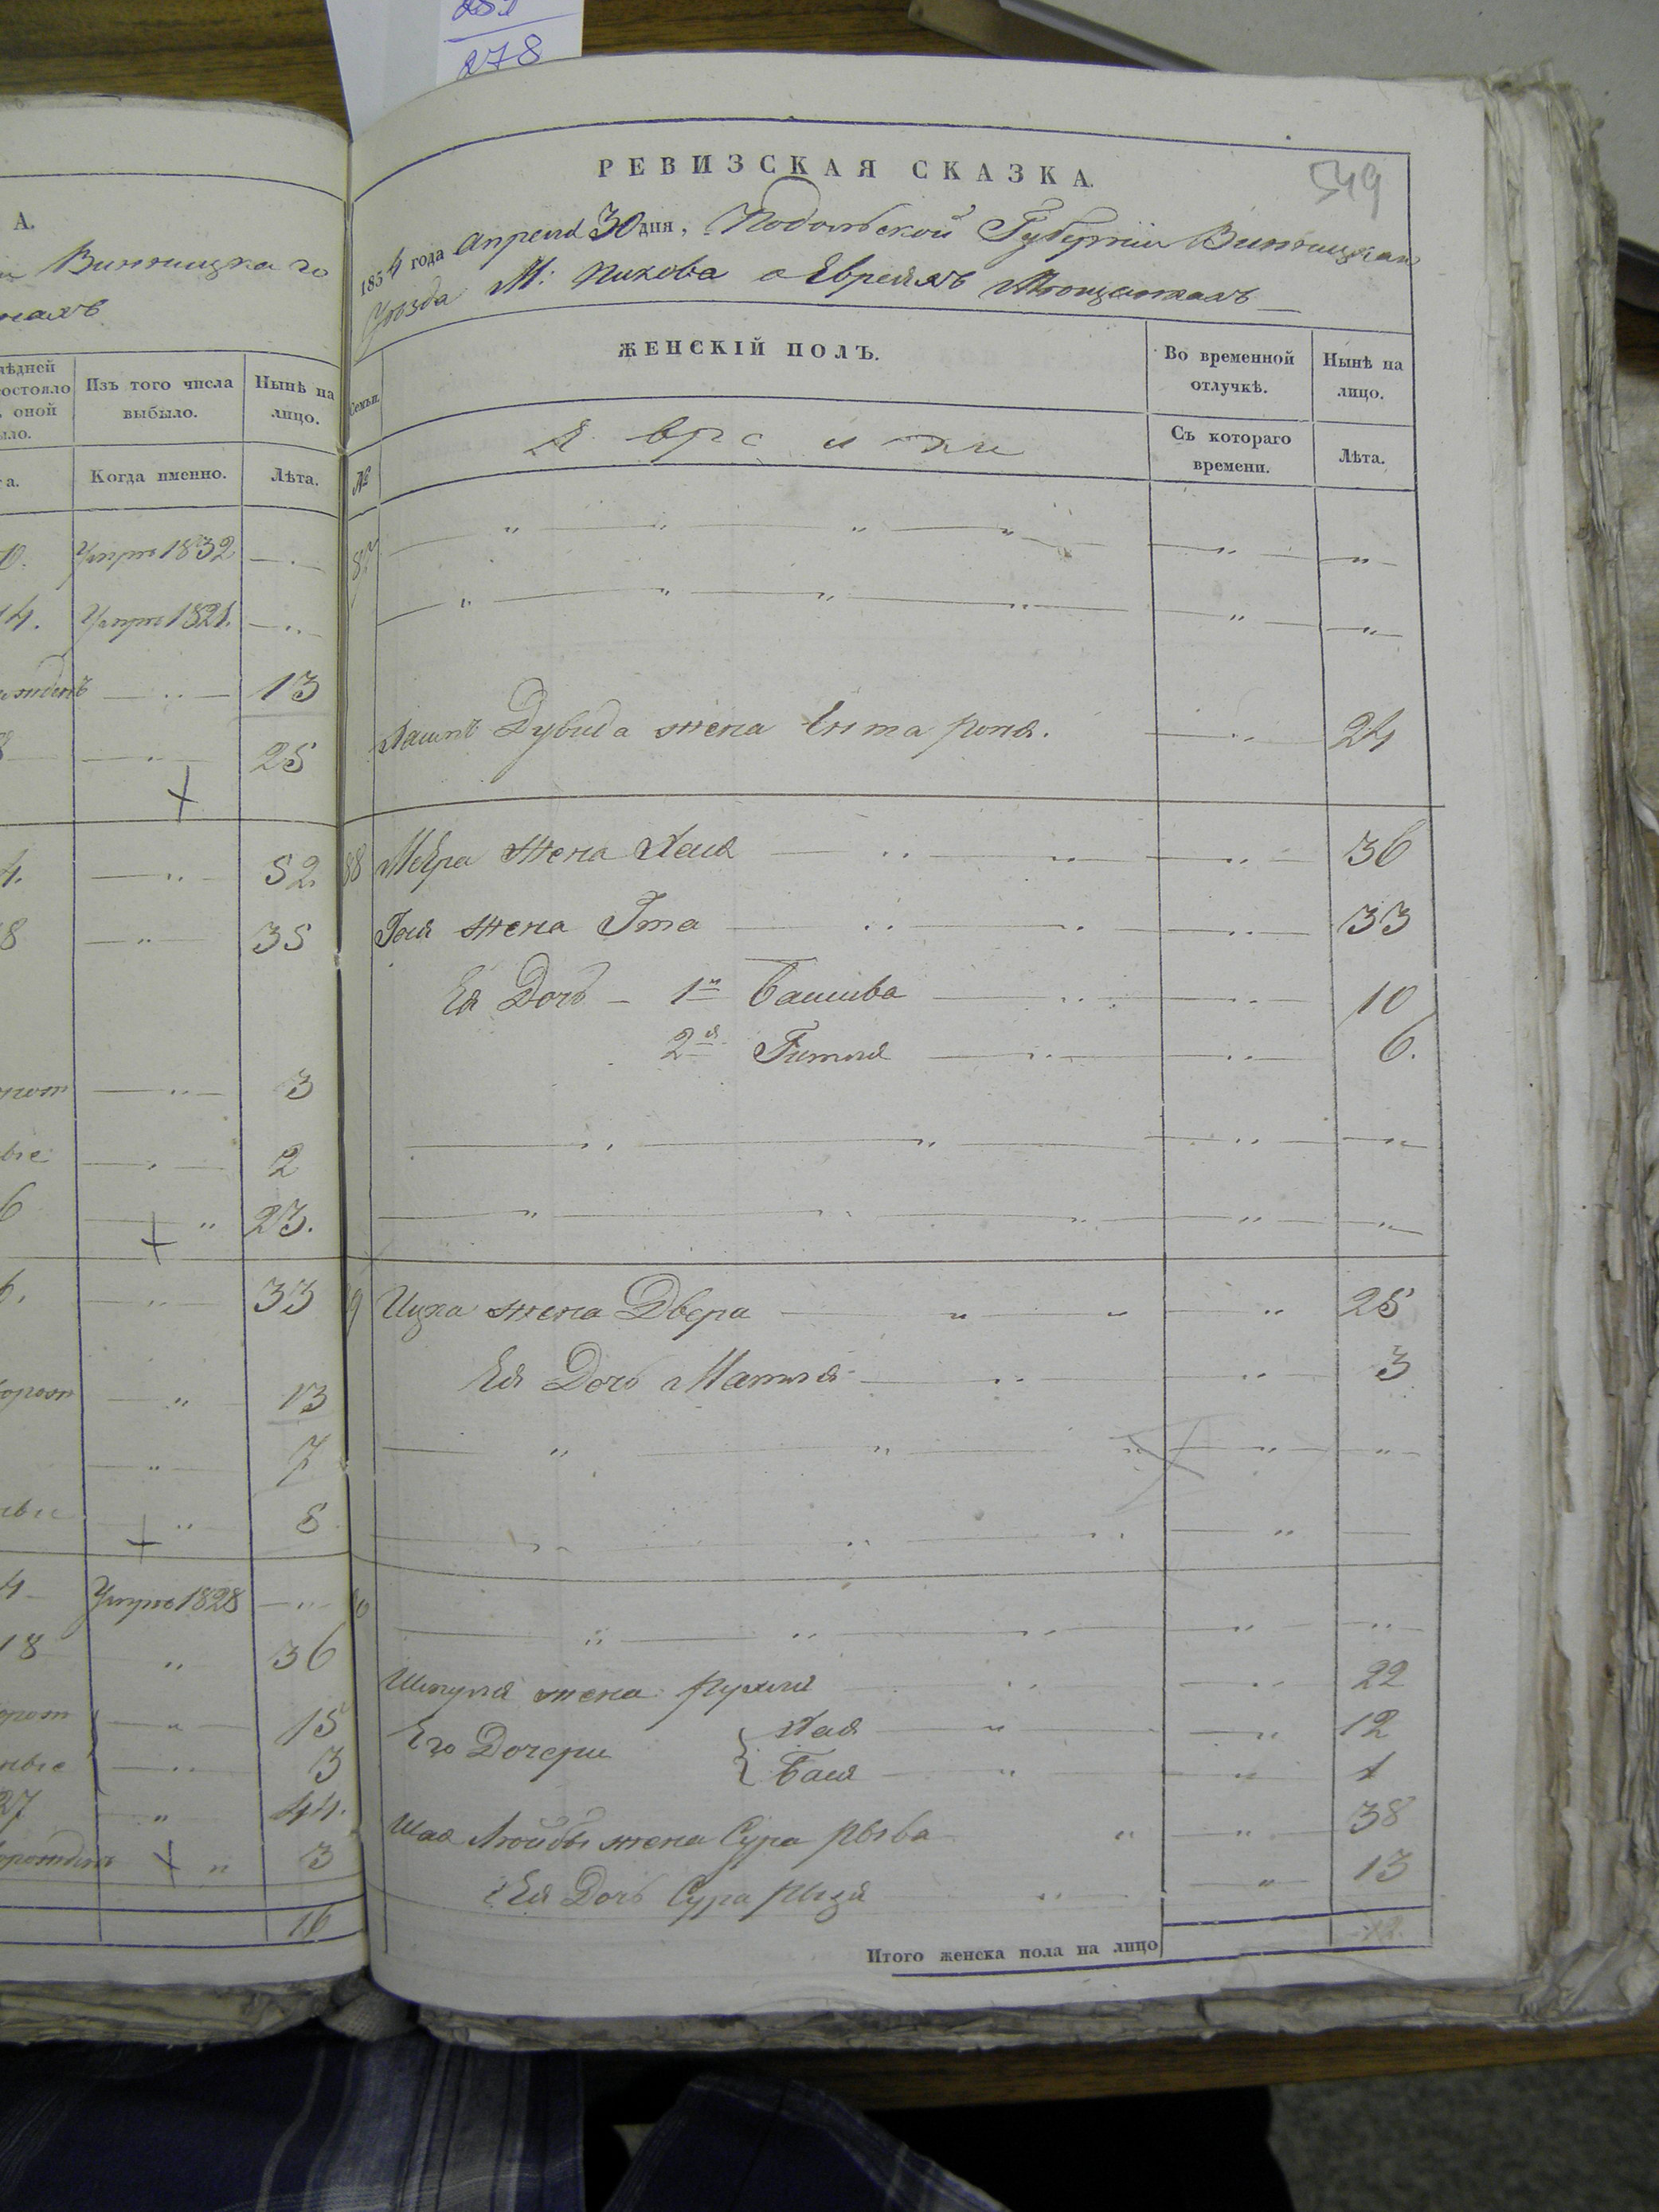 278
А.
Винницкаго
лѣдней
Изъ того числа
Нынѣ на
состояло
выбыло.
лицо.
оной
ыло.
Когда именно.
Лѣта.
Умре 1832
14. Умре 1821.
13
25
52
8 35
3
2
6 23.
33
13
7
8
4 Умре 1828
18 36
15
3
27 44.
3
16
549
РЕВИЗСКАЯ СКАЗКА.
1854 года Апреля 30 дня, Подольской Губерніи Винницкаго
Уѣзда М: Пикова о Евреяхъ Мѣщанахъ
Семьи.
ЖЕНСКІЙ ПОЛЪ.
Во временной отлучкѣ.
Нынѣ на лицо.
№
Евреики
Съ котораго времени.
Лѣта.
87
Дувида жена Ента 24
88 Меера жена Хая 36
жена Ита 33
Ея Дочь 1я Башива 10
2я Гитля 6.
Ицка жена Двера 25
Ея Дочь Матля 3
Шмуля жена Рухля 22
Его Дочери Хая 12
Бася 1
Шая Лейбы жена Сура Рыва 38
Ея Дочь Сура Рызя 13
Итого женска пола на лицо